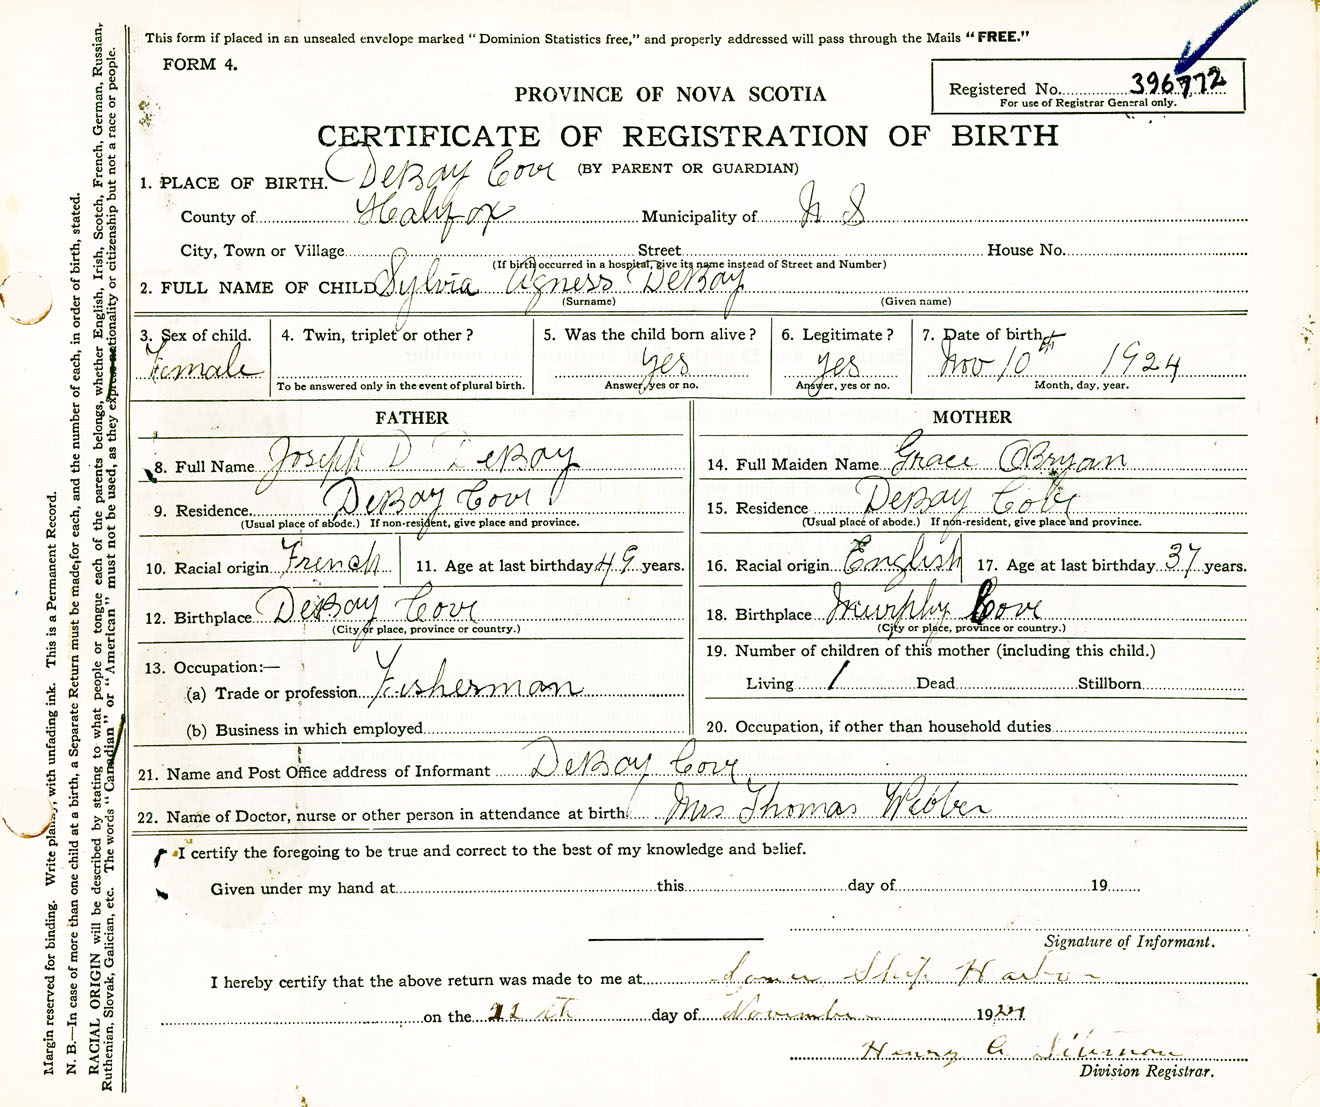 This form if placed in an unsealed envelope marked "Dominion Statistics free," and properly addressed will pass through the Mails "FREE."
FORM 4.
Registered No. 396772
For use of Registrar General only.
PROVINCE OF NOVA SCOTIA
CERTIFICATE OF REGISTRATION OF BIRTH
(BY PARENT OR GUARDIAN)
1. PLACE OF BIRTH. DeBay Cove
County of Halifax Municipality of N S
City, Town or Village Street House No.
(If birth occurred in a hospital, give its name instead of Street and Number)
2. FULL NAME OF CHILD Sylvia Agness DeBay
(Surname) (Given name)
3. Sex of child. 4. Twin, triplet or other? 5. Was the child born alive? 6. Legitimate? 7. Date of birth
Female yes yes Nov 10th 1924
To be answered only in the event of plural birth. Answer, yes or no. Answer, yes or no. Month, day, year.
FATHER
8. Full Name Joseph D DeBay
9. Residence DeBay Cove
(Usual place of abode.) If non-resident, give place and province.
10. Racial origin French 11. Age at last birthday 49 years.
12. Birthplace DeBay Cove
(City or place, province or country.)
13. Occupation:—
(a) Trade or profession Fisherman
(b) Business in which employed
MOTHER
14. Full Maiden Name Grace OBryan
15. Residence DeBay Cove
(Usual place of abode.) If non-resident, give place and province.
16. Racial origin English 17. Age at last birthday 37 years.
18. Birthplace Murphy Cove
(City or place, province or country.)
19. Number of children of this mother (including this child.)
Living 1 Dead Stillborn
20. Occupation, if other than household duties
21. Name and Post Office address of Informant DeBay Cove
22. Name of Doctor, nurse or other person in attendance at birth. Mrs Thomas Webber
I certify the foregoing to be true and correct to the best of my knowledge and belief.
Given under my hand at this day of 19
Signature of Informant.
I hereby certify that the above return was made to me at Lower Ship Harbor
on the day of November 1924
Henry
Division Registrar.
Margin reserved for binding. Write plainly, with unfading ink. This is a Permanent Record.
N. B.—In case of more than one child at a birth, a Separate Return must be made for each, and the number of each, in order of birth, stated.
RACIAL ORIGIN will be described by stating to what people or tongue each of the parents belongs, whether English, Irish, Scotch, French, German, Russian,
Ruthenian, Slovak, Galician, etc. The words "Canadian" or "American" must not be used, as they express nationality or citizenship but not a race or people.